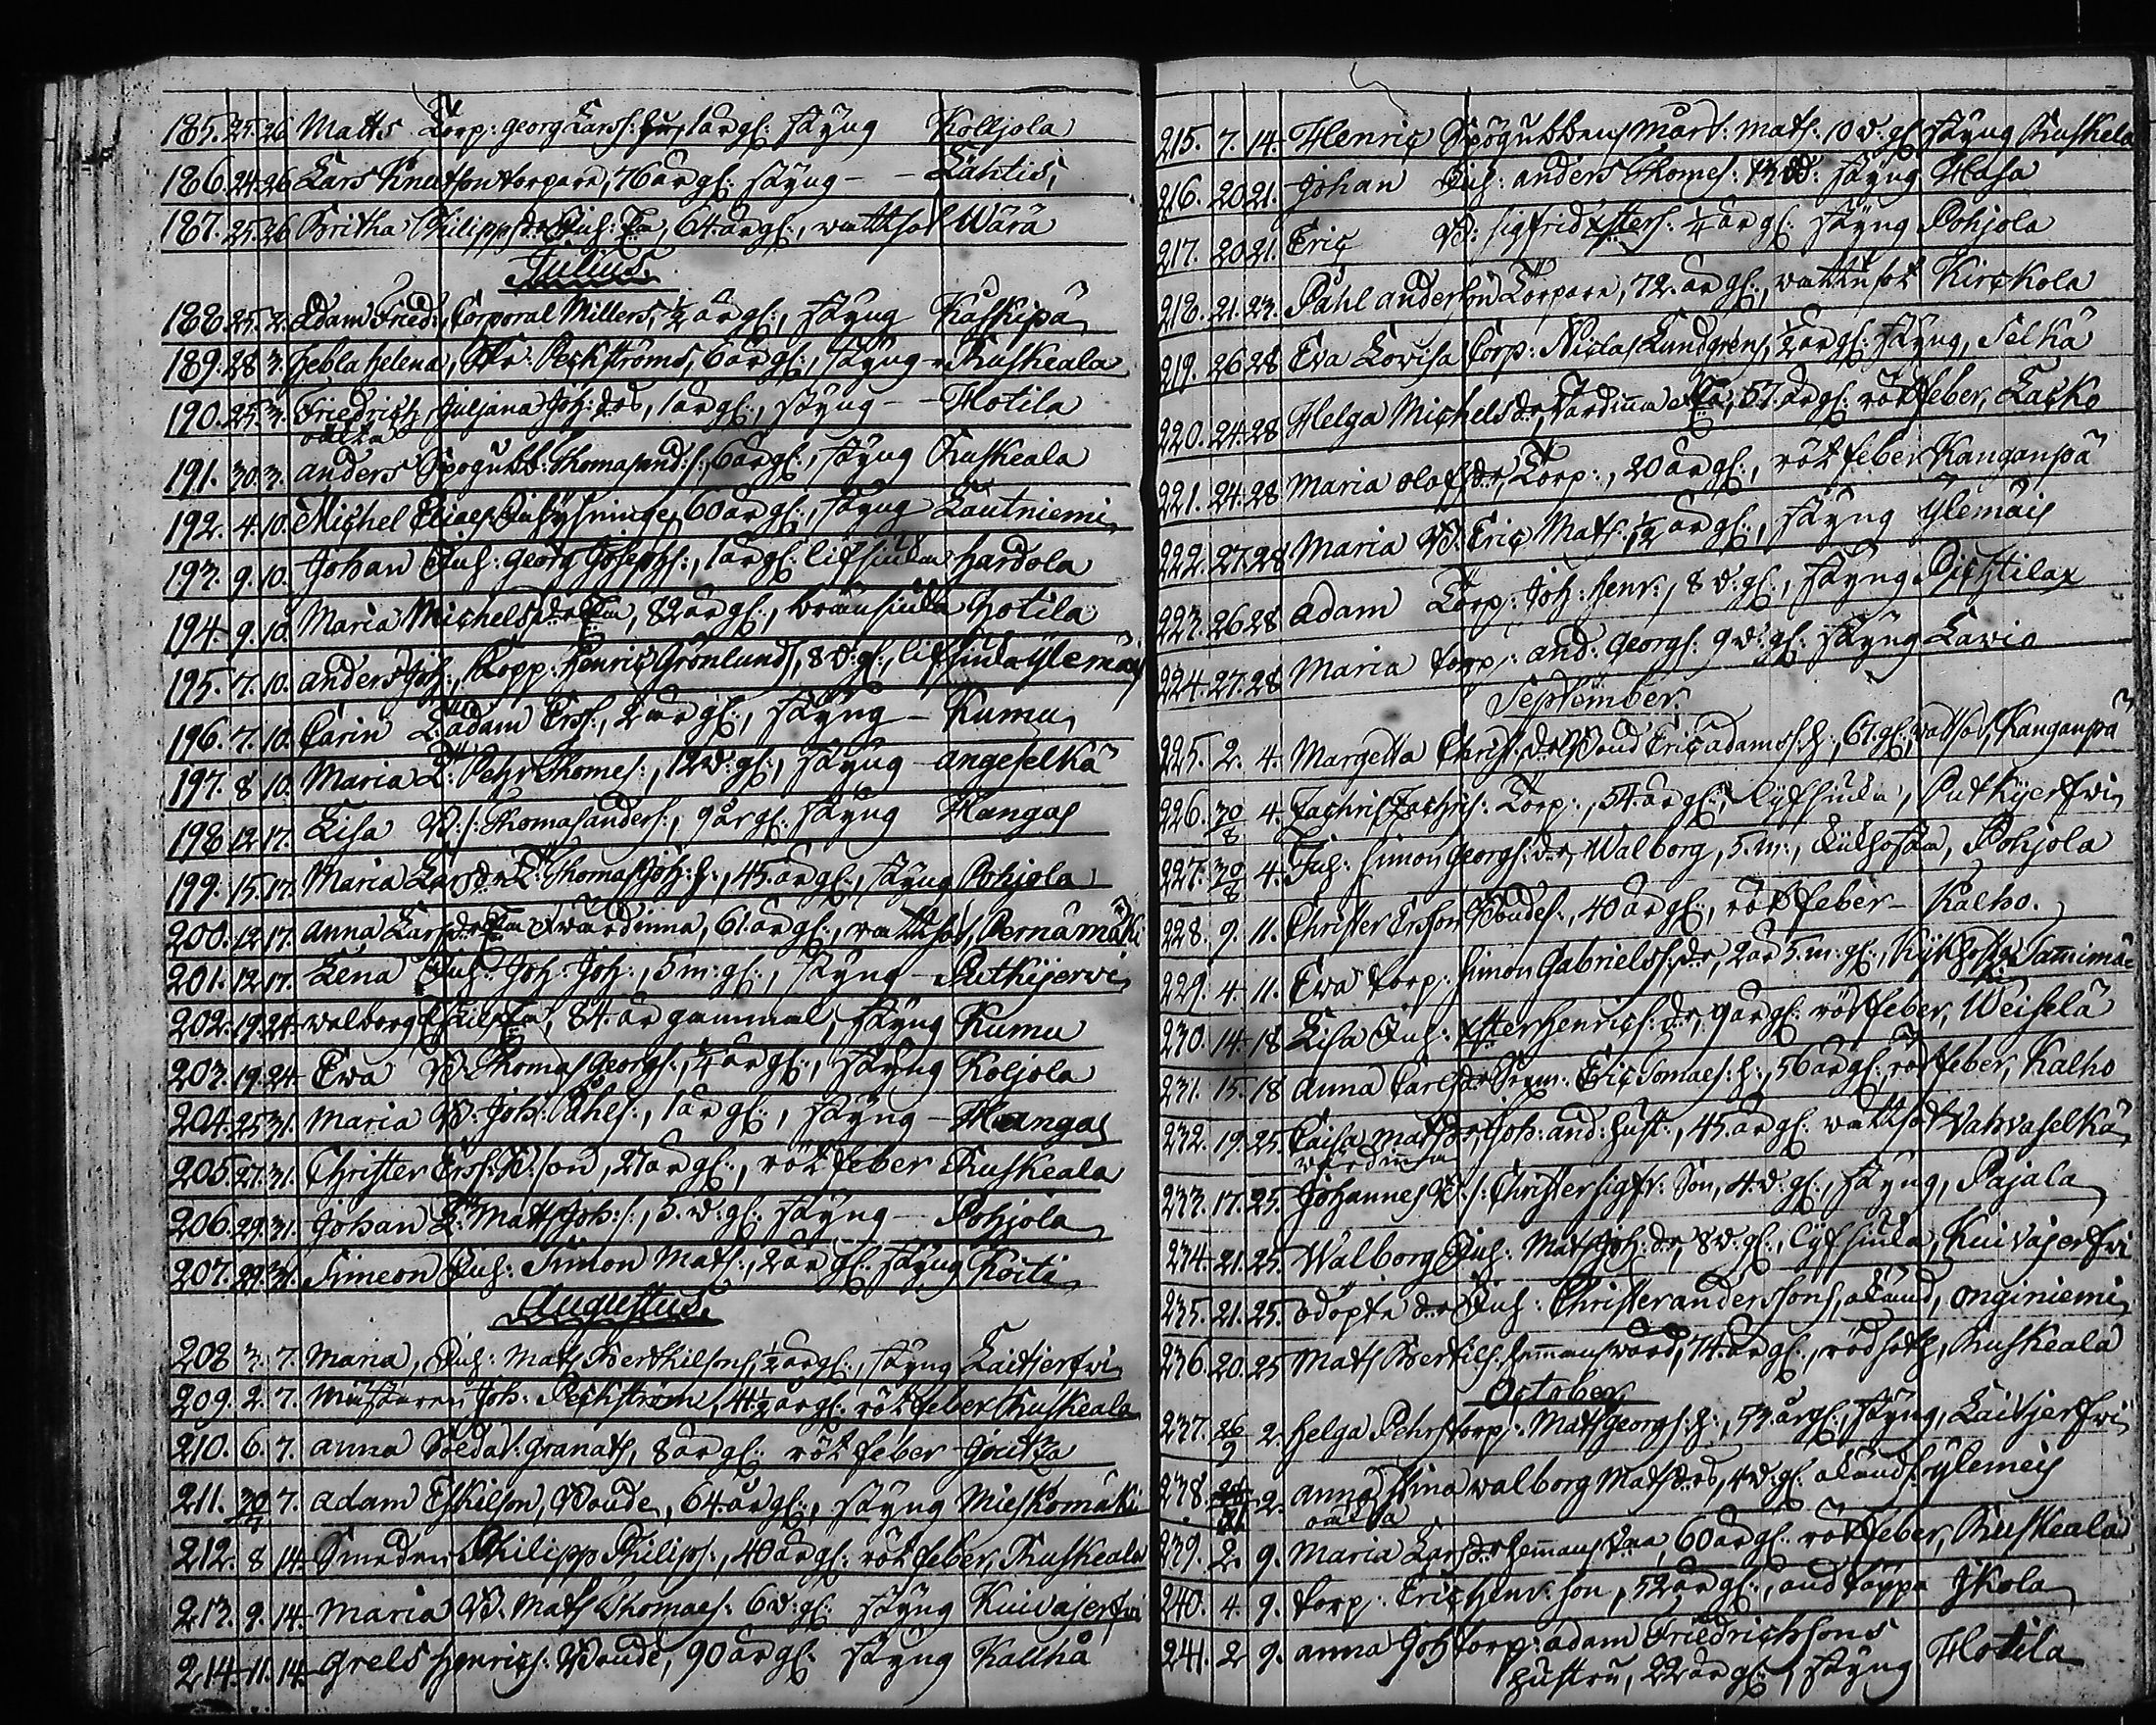 185. 25. 26 Matts Torp: Georg Larss: 1 år gl: styng Kolljola
186. 24. 26 Lars Knutson torpare, 76 år gl: styng - - Lahtis,
187. 25. 26 Britha Philipps dr Inh: Ea, 64 år gl:, vattsot Wärä
Julius.
188. 25. 2. Adam Fried:, Corporal Millers, ½ år gl:, styng Kaskipä
189. 28 3. Hebla Helena, Peckströms, 6 år gl:, styng - Ruskeala
190. 25. 3. Friedrich, Juljana Joh: drs, 1 år gl:, styng - - Hotila
191. 30. 3. Anders Spögubb: Thomas And: s:, 6 år gl:, styng Ruskeala
192. 4. 10. Michel Elias: Inhysninge, 60 år gl:, styng Lautniemi
193. 9. 10. Johan Inh: Georg Josephs:, 1 år gl: lifsiuka Hardola
194. 9. 10. Maria Michels dr Ea, 82 år gl:, bränsiuka Hotila
195. 7. 10. Anders Joh:, Henric Grönlunds, 8 d: gl:, lifsiuka Ylemäis
196. 7. 10. Carin L: Adam Erss:, 2 år gl:, styng - Kumu
197. 8 10. Maria L: Pehr Thomes:, 12 d: gl:, styng - Angeselkä
198 12 17. Lisa B: s: Thomas Anders:, 9 år gl: styng Hangas
199. 15. 17. Maria Lars dr L: Thomas Joh: h:, 45 år gl:, styng Pohjola
200. 12 17. Anna Lars dr Ea wärdinna, 61 år gl:, vattsot, Pernämäki
201. 12 17. Lena Inh: Joh: Joh:, 5 m: gl:, styng - Putkijerwi
202. 19. 24. Walborg Eskils Ea, 84 år gammal, styng Kumu
203. 19. 24. Ewa B: Thomas Georgs:, ¼ år gl:, styng Koljola
204. 25 31. Maria B: Joh: Påhls:, 1 år gl:, styng - Hangas
205. 27. 31. Christer Erss: B: son, 27 år gl:, röt feber Ruskeala
206. 29. 31. Johan L: Matts Joh: s:, 5 d: gl: styng - Pohjola
207. 29. 31. Simeon Inh: Simon Mats:, 2 år gl: styng Koiti
Augustus.
208 3. 7. Maria, Inh: Mats Berthilsons, ½ år gl:, styng Laitjerfwi
209. 2. 7. Joh: Peckström, 41½ år gl: röt feber Ruskeala
210. 6. 7. Anna Soldat: Granats, 8 år gl: röt feber - Joutza
211. 30/7 7. Adam Eskilson, Bonde, 64 år gl:, styng Mieskomäki
212. 8 14. Smeden Philipp Philips:, 40 år gl: röt feber, Ruskeala
213. 9. 14. Maria B: Mats Thomaes: 6 d: gl: styng Kuivajerfwi
214. 11. 14. Grels Henrics: Bonde, 90 år gl: styng Kallhå
215. 7. 14. Henric Spögubbens Mårt: Mats: 10 d: gl: styng Ruskela
216. 20 21. Johan Inh: Anders Thomes: 13 d: styng Hasa
217. 20 21. Eric B: Sigfrid Esters: ¼ år gl: styng Pohjola
218. 21. 23. Påhl Anderson Torpare, 72 år gl:, vattusot Kirckola
219. 26 28 Eva Lovisa Corp: Niclas Lundgrens, ½ år gl: styng, Selkä
220. 24. 28 Helga Michels dr, wärdinna Ea, 57 år gl: röt feber, Lacko
221. 24. 28 Maria Olofs dr, Torp:, 20 år gl:, röt feber Kanganpä
222. 27. 28 Maria B: Eric Mats:, ½ år gl:, styng Ylemäis
223. 26 28 Adam Torp: Joh: Henr:, 8 d: gl:, styng Pichtilax
224. 27. 28 Maria torp: And: Georgs: 9 d: gl: styng Lavio
September.
225. 2. 4. Margetta Christ: dr Bond Eric Adams: h:, 67. gl:, vatsot, Kanganpä
226. 30/8 4. Zachris Zachris: Torp:, 54 år gl:, lifsiuka, Putkijerfwi
227. 30/8 4. Inh: Simon Georgs: dr, Walborg, 5. m:, Kikhosta, Pohjola
228. 9. 11. Christer Ersson Bondes:, 40 år gl:, röt feber - Kalho.
229. 4. 11. Ewa torp: Simon Gabriels: dr, 2 år 5. m: gl:, Kykhosta Tamimäe
230. 14. 18. Lisa Inh: Ester Henrics: dr, 9 år gl: röt feber, Weiselä
231. 15. 18 Anna Carls dr Eric Tomaes: h:, 56 år gl: röt feber, Kalho
232. 19. 25. Caisa Mats dr, Joh: And: hust:, 45 år gl: vattsot Vahvaselkä
wärdinna
233. 17. 25. Johannes B: s: Christer Sigfr: Son, 4 d: gl:, styng, Pajala
234. 21. 25. Walborg Inh: Mats Joh: dr, 8 d: gl:, lifsiuka, Kuivajerfwi
235. 21. 25. Odöpta dr Inh: Christer Anderssons, okänd, Onginiemi
236. 20. 25 Mats Bertils: hemansvärd, 74 år gl:, rödsoth, Ruskeala
October
237. 26/9 2. Helga Pehrs torp: Mats Georgs: h:, 53 år gl:, styng, Laitjerfwi
238. 2. Anna Stina Walborg Mats drs, 4 d: gl: okänd: Ylemeis
239. 2. 9. Maria Lars dr hemans Ea, 60 år gl: röt feber, Ruskeala
240. 4. 9. torp: Eric Henr: son, 52 år gl:, andtäppa Ikola
241. 2 9. Anna Joh: torp: Adam Friedrichsons
hustru, 22 år gl:, styng Hotila